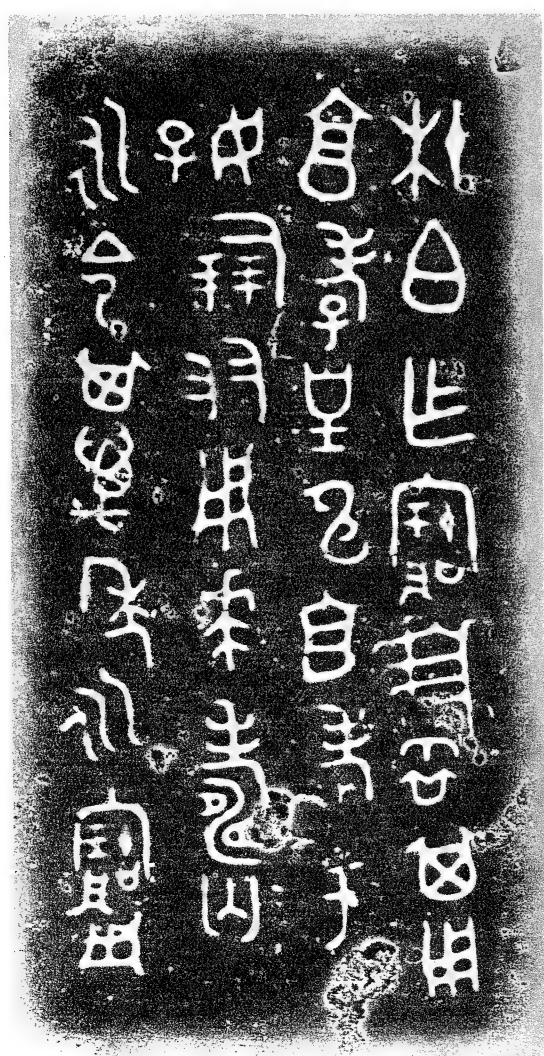 杜白乍寶盨其用
享孝皇申且考于
好倗友用𠦪壽匃
永令其萬年永寶用